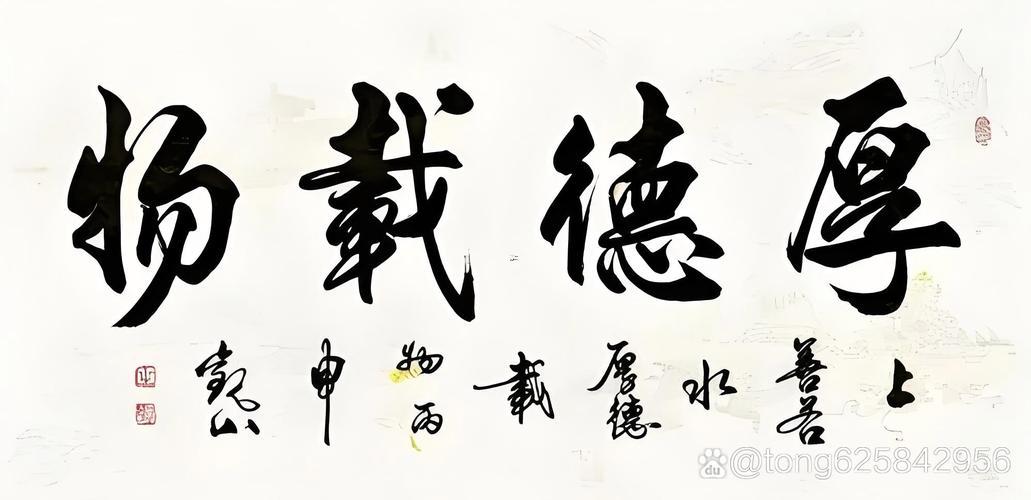 厚德載物
上善若水厚德載物丙申
@tong625842956